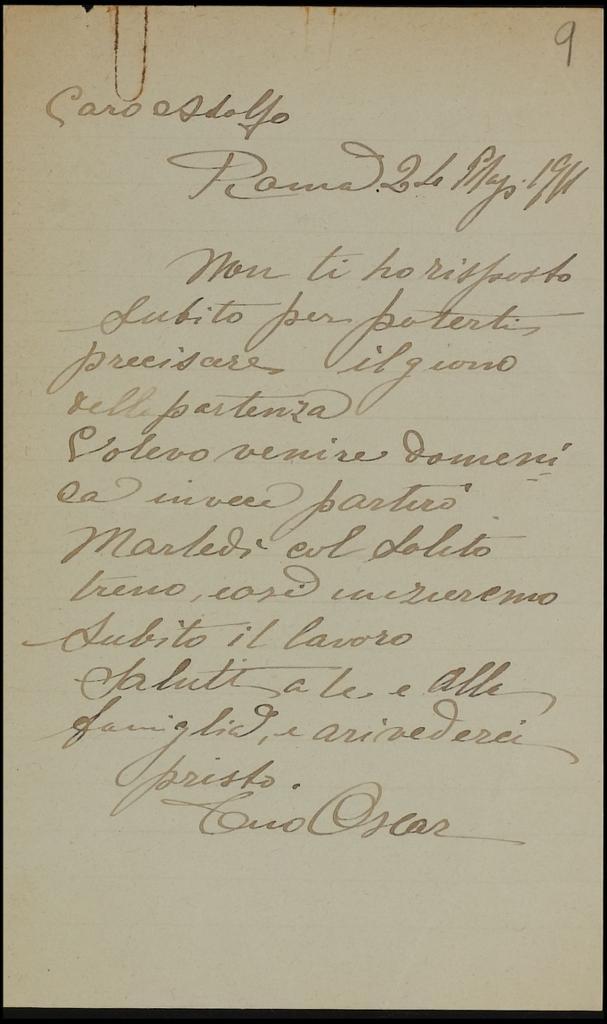 9
Caro Adolfo
Roma 24 Mag. 1911
Non ti ho risposto
subito per poterti
precisare il giono
della partenza
Volevo venire domeni
ca invece partirò
Martedì col solito
treno, così inizieremo
subito il lavoro
Saluti a te e alla
famiglia, e arivederci
pristo.
Tuo Oscar